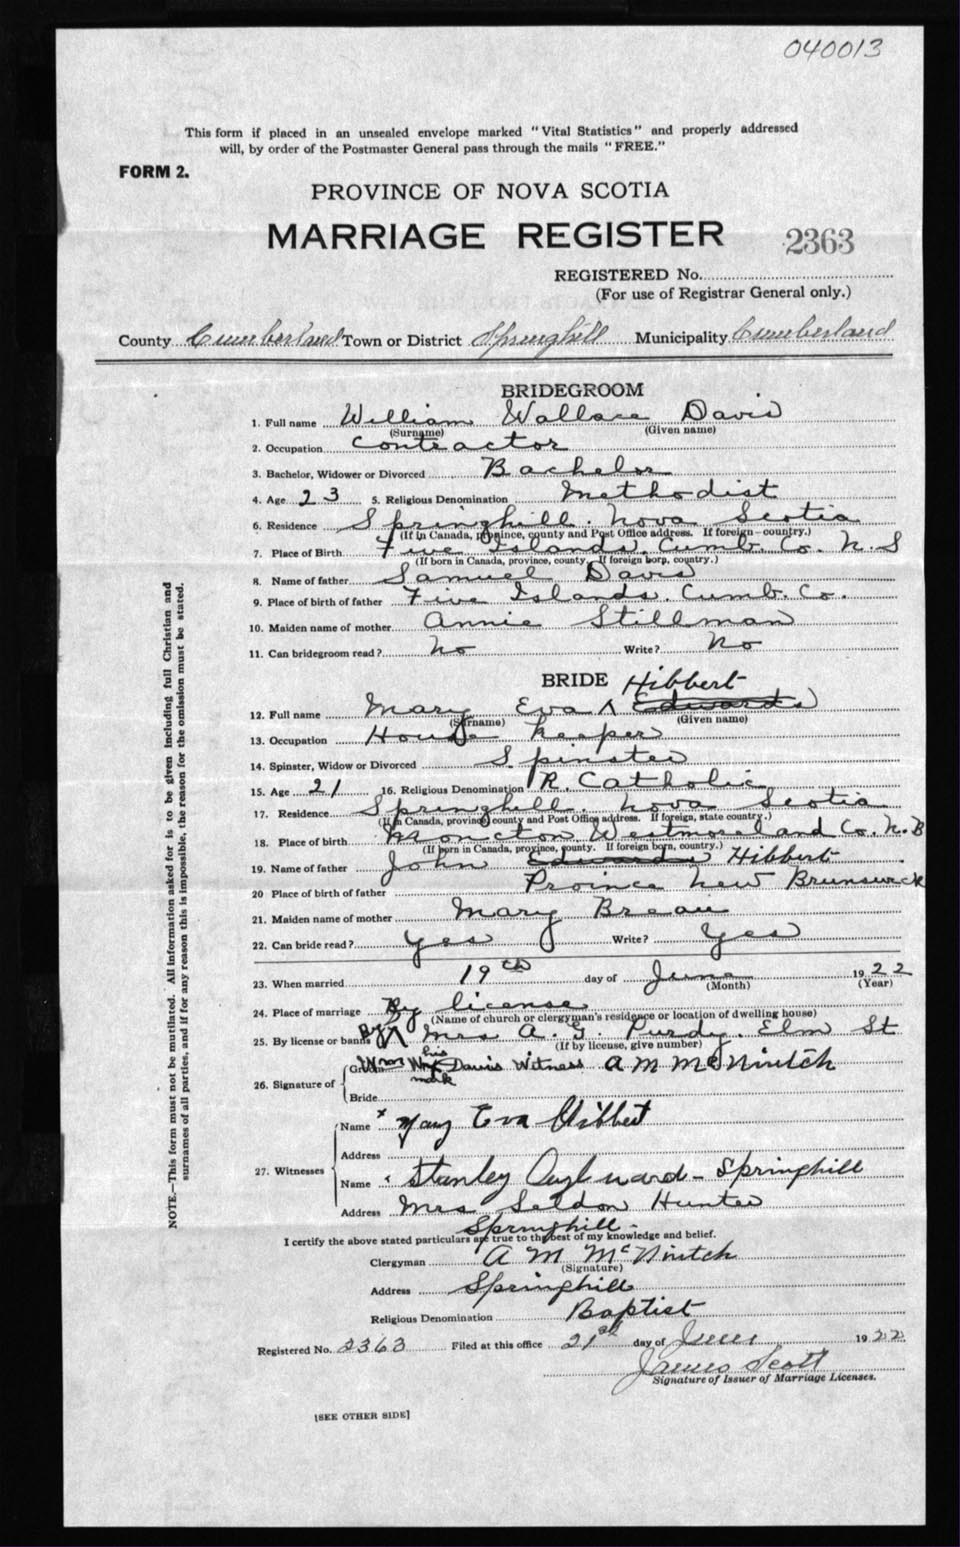 040013
This form if placed in an unsealed envelope marked "Vital Statistics" and properly addressed
will, by order of the Postmaster General pass through the mails "FREE."
FORM 2.
PROVINCE OF NOVA SCOTIA
MARRIAGE REGISTER 2363
REGISTERED No.
(For use of Registrar General only.)
County Cumberland Town or District Springhill Municipality Cumberland
BRIDEGROOM
1. Full name William Wallace Davis
(Surname) (Given name)
2. Occupation Contractor
3. Bachelor, Widower or Divorced Bachelor
4. Age 23 5. Religious Denomination Methodist
6. Residence Springhill. Nova Scotia
(If in Canada, province, county and Post Office address. If foreign—country.)
7. Place of Birth Five Islands, Cumb. Co. N.S
(If born in Canada, province, county. If foreign born, country.)
8. Name of father Samuel Davis
9. Place of birth of father Five Islands. Cumb. Co.
10. Maiden name of mother Annie Stillman
11. Can bridegroom read? No Write? No
BRIDE Hibbert
12. Full name Mary Eva ʌ Edwards
(Surname) (Given name)
13. Occupation House Keeper
14. Spinster, Widow or Divorced Spinster
15. Age 21 16. Religious Denomination R. Catholic
17. Residence Springhill. Nova Scotia
(If in Canada, province, county and Post Office address. If foreign, state country.)
18. Place of birth Moncton Westmoreland Co. N.B
(If born in Canada, province, county. If foreign born, country.)
19. Name of father John Edwards Hibbert
20 Place of birth of father Proince New Brunswick
21. Maiden name of mother Mary Breau
22. Can bride read? Yes Write? Yes
23. When married 19th day of June 1922
(Month) (Year)
24. Place of marriage By license
(Name of church or clergyman's residence or location of dwelling house)
25. By license or banns By ʌ Mrs A. G. Purdy. Elm St
(If by license, give number)
his
26. Signature of Groom Wm Davis Witness A M McNintch
mark
Bride
Name x Mary Eva Hibbert
27. Witnesses Address
Name Stanley - Springhill
Address Mrs Seldon Hunter
Springhill -
I certify the above stated particulars are true to the best of my knowledge and belief.
Clergyman A M McNintch
(Signature)
Address Springhill
Religious Denomination Baptist
Registered No. 2363 Filed at this office 21st day of June 1922
James Scott
Signature of Issuer of Marriage Licenses.
[SEE OTHER SIDE]
NOTE.—This form must not be mutilated. All information asked for is to be given including full Christian and
surnames of all parties, and if for any reason this is impossible, the reason for the omission must be stated.